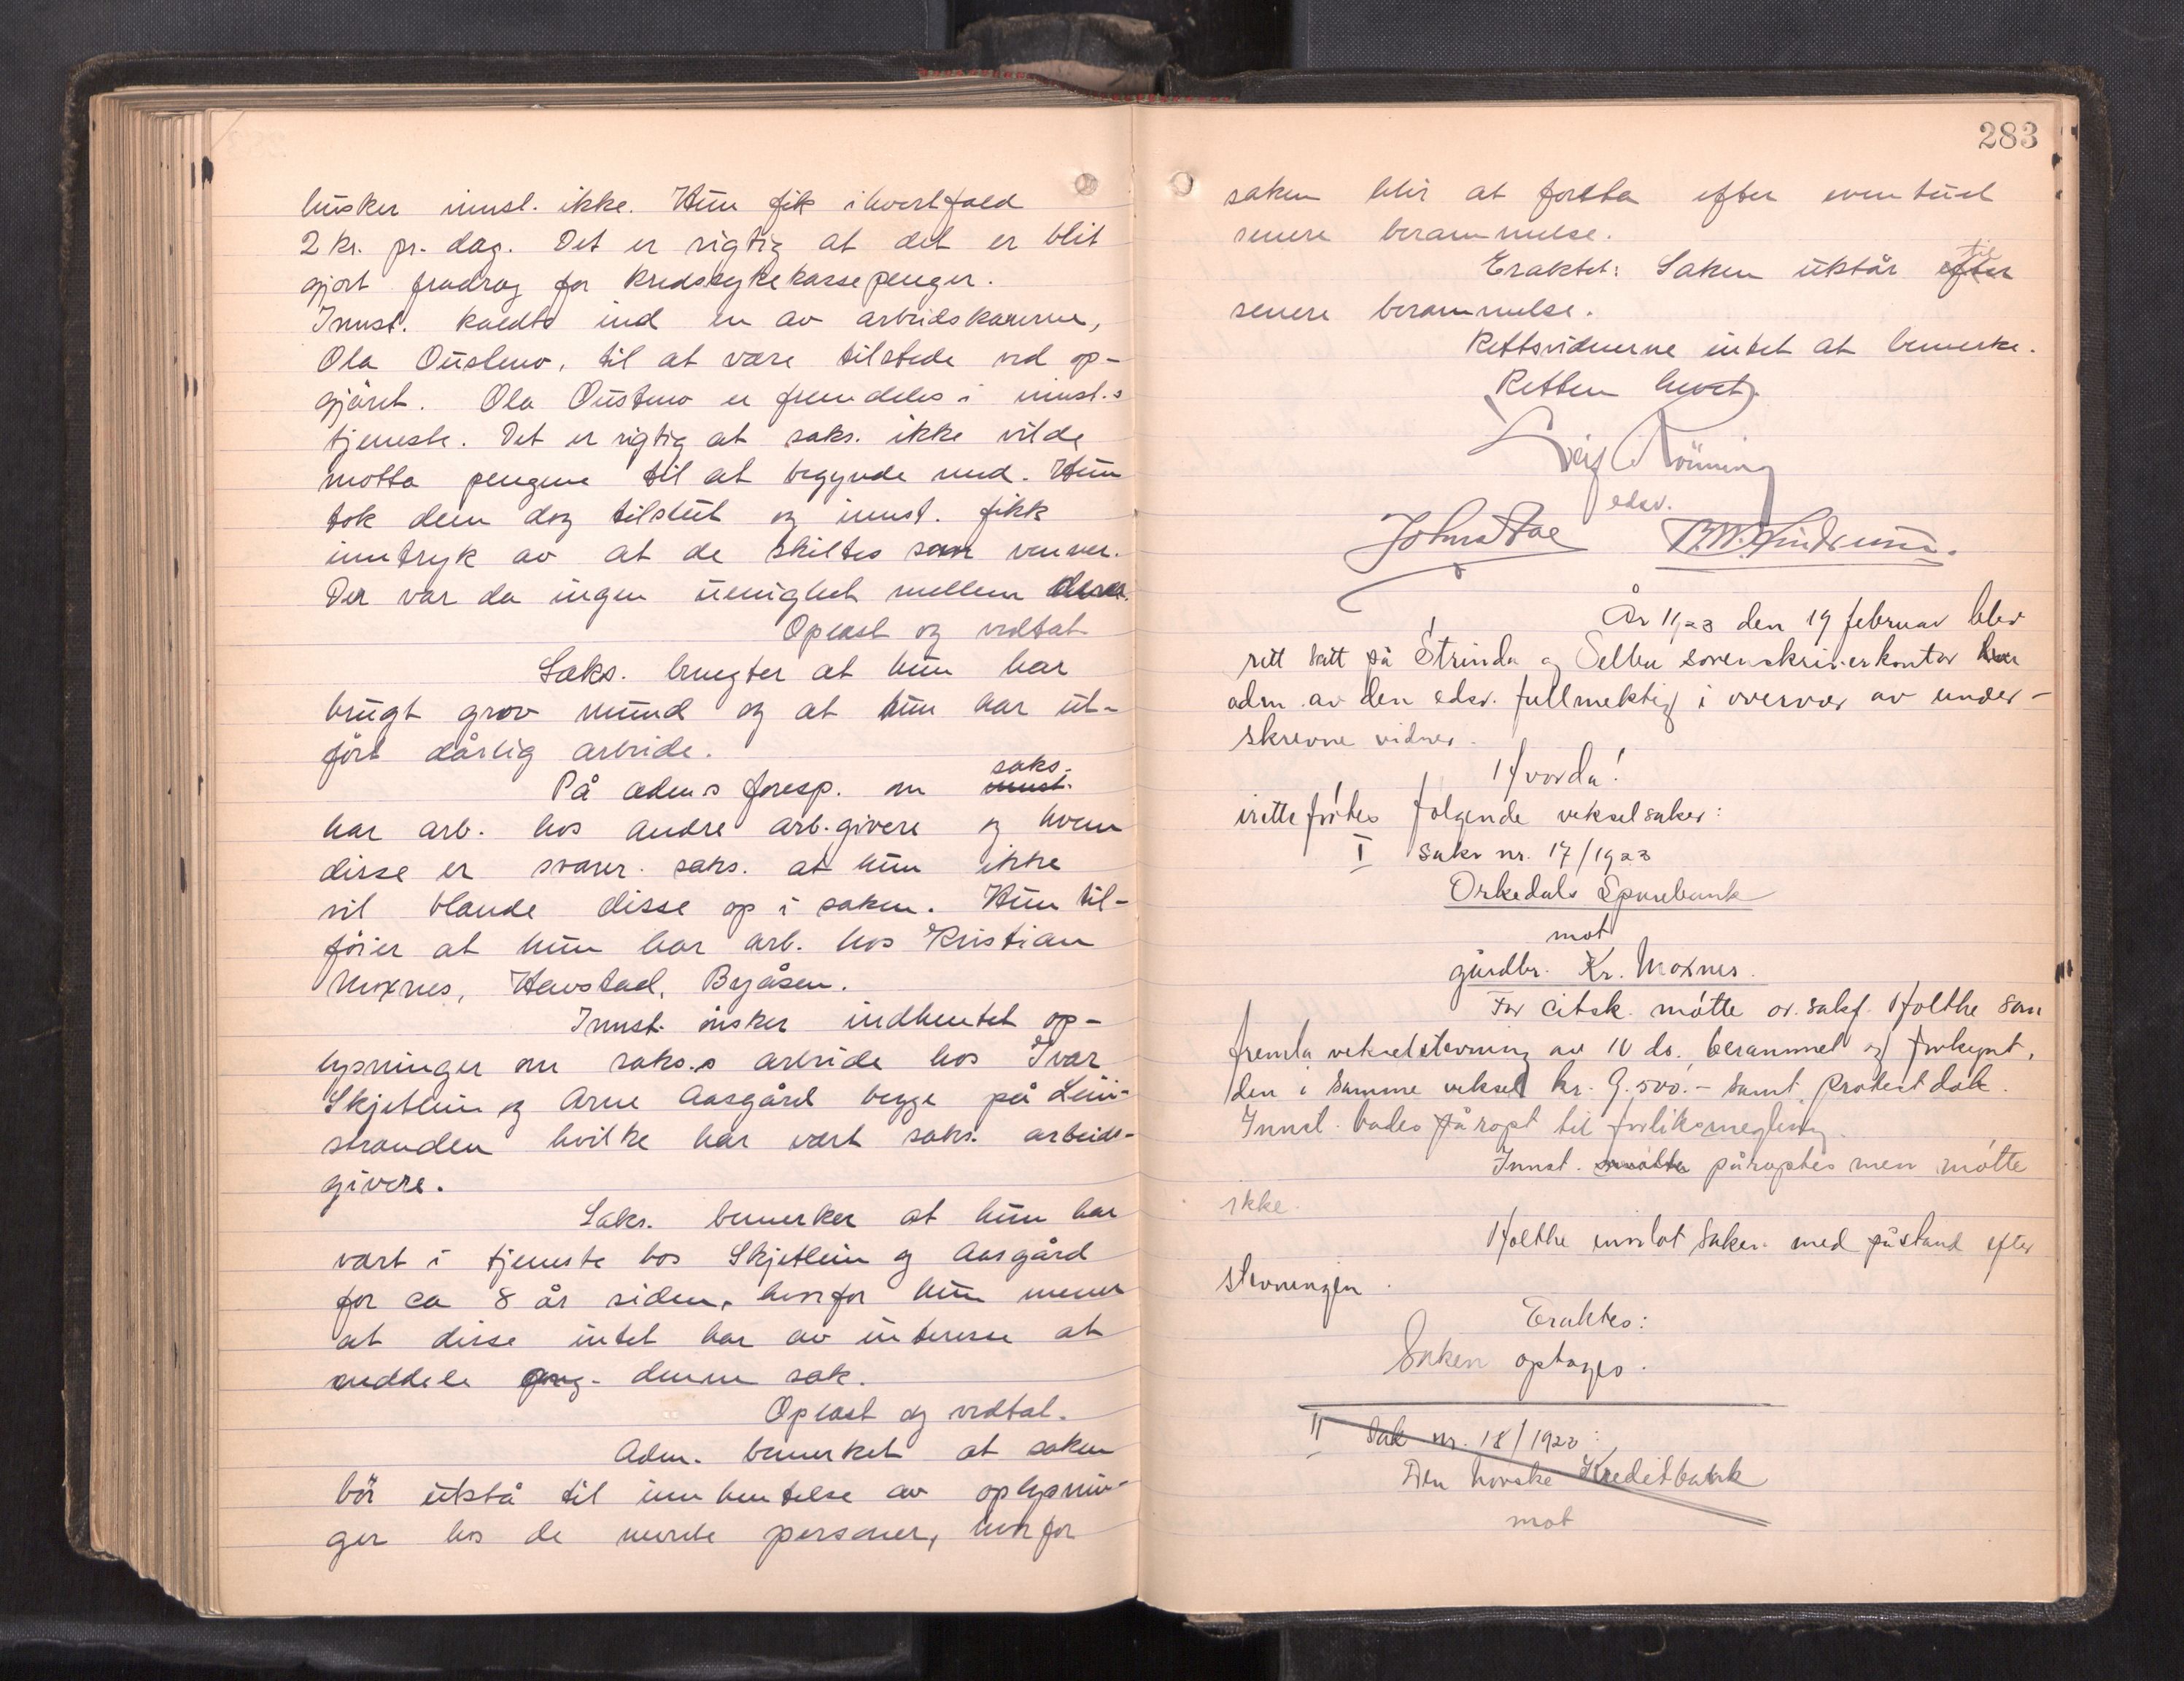 husker innst. ikke. Hun fik ihvertfald
2 kr. pr. dag. Det er rigtig at det er blit
gjort fradrag for kredssykekassepenger.
Innst. kaldte ind en av arbeidskarerne,
Ola Oustmo, til at være tilstede ved op-
gjöret. Ola Oustmo er fremdeles i innst.s
tjeneste. Det er rigtig at saks. ikke vilde
motta pengene til at begynde med. Hun
tok dem dog tilslut og innst. fikk
inntryk av at de skiltes som venner.
Der var da ingen uenighet mellem dem.
Oplæst og vedtat
Saks. benegter at hun har
brugt grov mund og at hun har ut-
fört dårlig arbeide.
På adm.s foresp. om innst. saks.
har arb. hos andre arb.givere og hvem
disse er svarer saks. at hun ikke
vil blande disse op i saken. Hun til-
föier at hun har arb. hos Kristian
Moxnes, Havstad, Byåsen.
Innst. önsker indhentet op-
lysninger om saks.s arbeide hos Ivar
Skjetlein og Arne Aasgård begge på Lein-
stranden hvilke har vært saks. arbeids-
givere.
Saks. bemerker at hun har
vært i tjeneste hos Skjetlein og Aasgård
for ca 8 år siden, hvorfor hun mener
at disse intet har av interesse at
meddele denne sak.
Oplæst og vedtat.
Adm. bemerket at saken
bör utstå til innhentelse av oplysnin-
ger hos de nevnte personer, hvorfor
283
saken blir at foretta efter eventuel
senere berammelse.
Eraktet: Saken utstår efter til
senere berammelse.
Rettsvidnerne intet at bemerke.
Retten hevet.
Leif Rönning
edsv.
John Stae
År 1923 den 19 februar blev
rett satt på Strinda og Selbu sorenskriverkontor
adm. av den edsv. fullmektig i overvær av under-
skrevne vidner.
Hvorda!
iretteförtes følgende vekselsaker:
I Sak nr. 17/1923
Orkedals Sparebank
mot
gårdbr. Kr. Moxnes.
For citsk. møtte or. sakf. Holthe som
fremla vekselstevning av 10 ds. berammet og forkynt,
den i samme veksel kr. 9.500.- samt protestdok.
Innst. bades påropt til forliksmegling.
Innst. møtte påroptes men møtte
ikke.
Holthe innlot saken med påstand efter
stevningen.
Eraktes:
Saken optages.
II Sak nr. 18/1923:
Den norske Kreditbank
mot